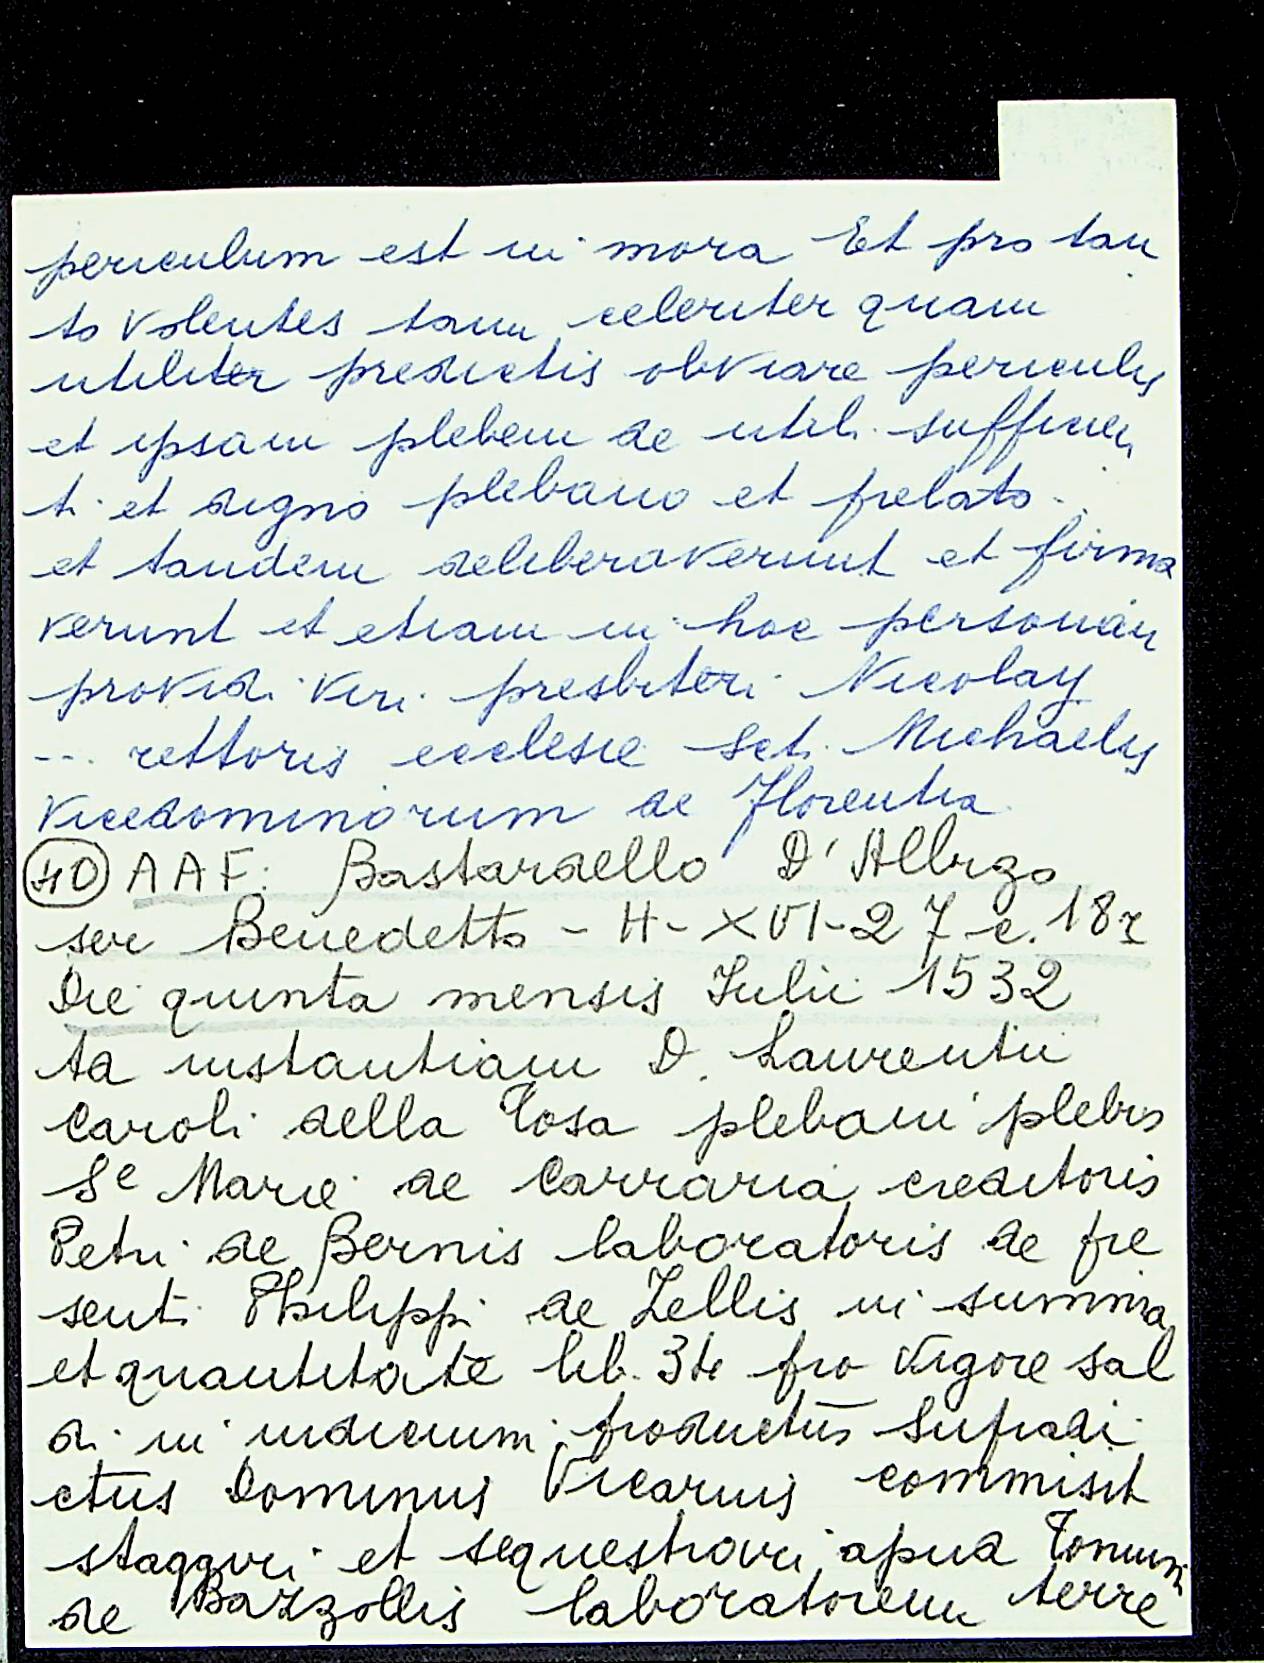 periculum est in mora Et pro tan
to volentes tam celeriter quam
utiliter predictis obviare periculis
et ipsam plebem de utili sufficien
ti et digno plebano et prelato
et tandem deliberaverunt et firma
verunt et etiam in hoc personam
providi viri presbiteri Nicolay
... rettoris ecclesie Scti Michaelis
Vicedominorum de Florentia
40 AAF: Bastardello D'Albizo
ser Benedetto - H-XVI-27 c. 18r
Die quinta mensis Iulii 1532
ta instantiam D. Laurentii
Caroli della Tosa plebani plebis
Se Marie de Carraria creditoris
Petri de Bernis laboratoris de pre
senti Philippi de Zellis in summa
et quantitate lib. 34 pro vigore sal
di in iudicium productus supradi
ctus Dominus Vicarius commisit
staggiri et sequestrari apud
de Bazzollis laboratorem terre